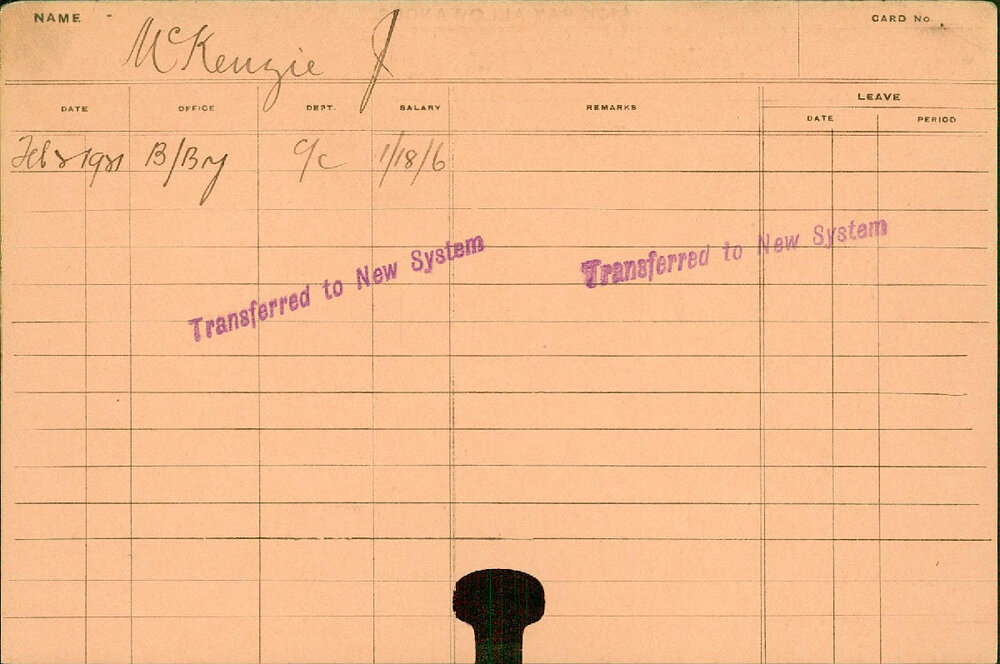 NAME
CARD No.
McKenzie J
DATE OFFICE DEPT. SALARY REMARKS LEAVE
DATE PERIOD
Feb 2 1921 B/Bry C/c 1/18/6
Transferred to New System
Transferred to New System